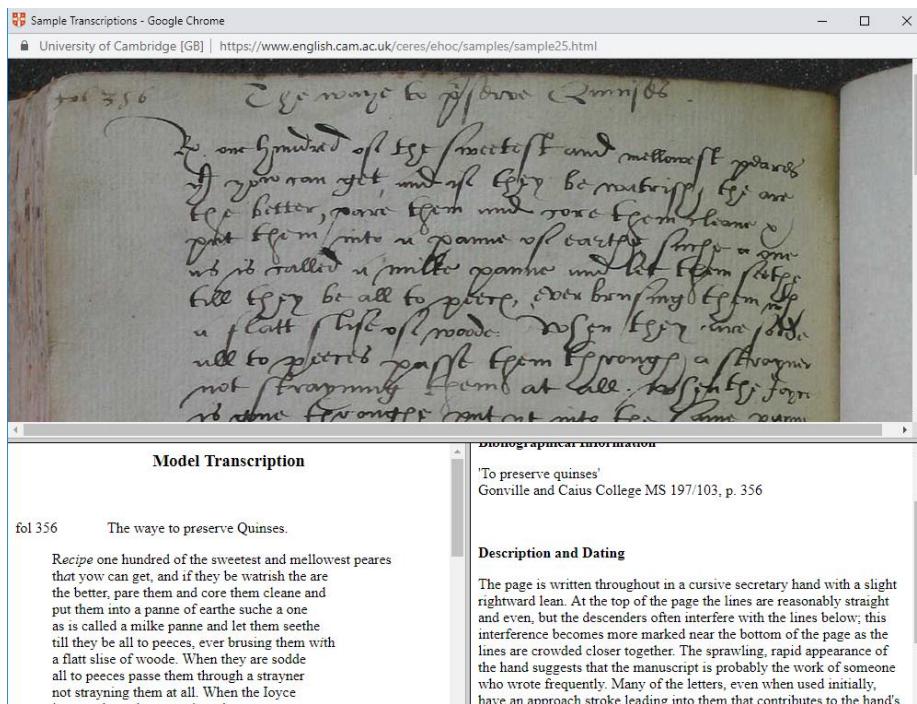 Sample Transcriptions - Google Chrome
University of Cambridge [GB] | https://www.english.cam.ac.uk/ceres/ehoc/samples/sample25.html
fol 356 The waye to pserve Quinses.
R. one hundred of the sweetest and mellowest peares
yt yow can get, and if they be watrish, the are
the better, pare them and core them cleane &
put them into a panne of earthe suche a one
as is called a milke panne and let them seethe
till they be all to peeces, ever brusing them wt
a flatt slise of woode. When they are sodde
all to peeces passe them through a strayner
not strayning them at all. When the Joyce
is gone throughe put yt into the same panne
Model Transcription
fol 356 The waye to preserve Quinses.
Recipe one hundred of the sweetest and mellowest peares
that yow can get, and if they be watrish the are
the better, pare them and core them cleane and
put them into a panne of earthe suche a one
as is called a milke panne and let them seethe
till they be all to peeces, ever brusing them with
a flatt slise of woode. When they are sodde
all to peeces passe them through a strayner
not strayning them at all. When the Ioyce
Bibliographical Information
'To preserve quinses'
Gonville and Caius College MS 197/103, p. 356
Description and Dating
The page is written throughout in a cursive secretary hand with a slight
rightward lean. At the top of the page the lines are reasonably straight
and even, but the descenders often interfere with the lines below; this
interference becomes more marked near the bottom of the page as the
lines are crowded closer together. The sprawling, rapid appearance of
the hand suggests that the manuscript is probably the work of someone
who wrote frequently. Many of the letters, even when used initially,
have an approach stroke leading into them that contributes to the hand's